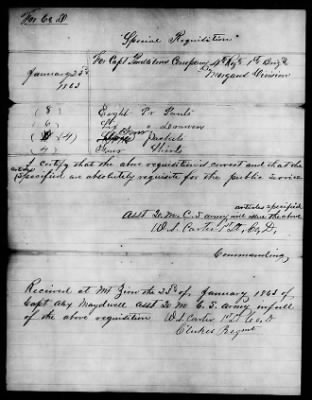 For Co D
"Special Requisition"
For Capt Company 4th Regt 1st Brigd
Morgans Division
January 25th
1863
(8) Eight Pr Pants
(6) Six " Drawers
(4) Four Jackets
(4) Four Shirts
I certify that the above requisition is correct and that the
articles
specified are absolutely requisite for the public service
articles specified
Asst Q. M. C. S. Army, will issue the above
W. S. Carter 1st Lt, Co D,
Commanding,
Received at Mt Zion the 25th of January 1863 of
Capt Alex Maydwell Asst Q M C. S. Army in full
of the above requisition W S Carter 1st Lt Co D
Clukes Regmt